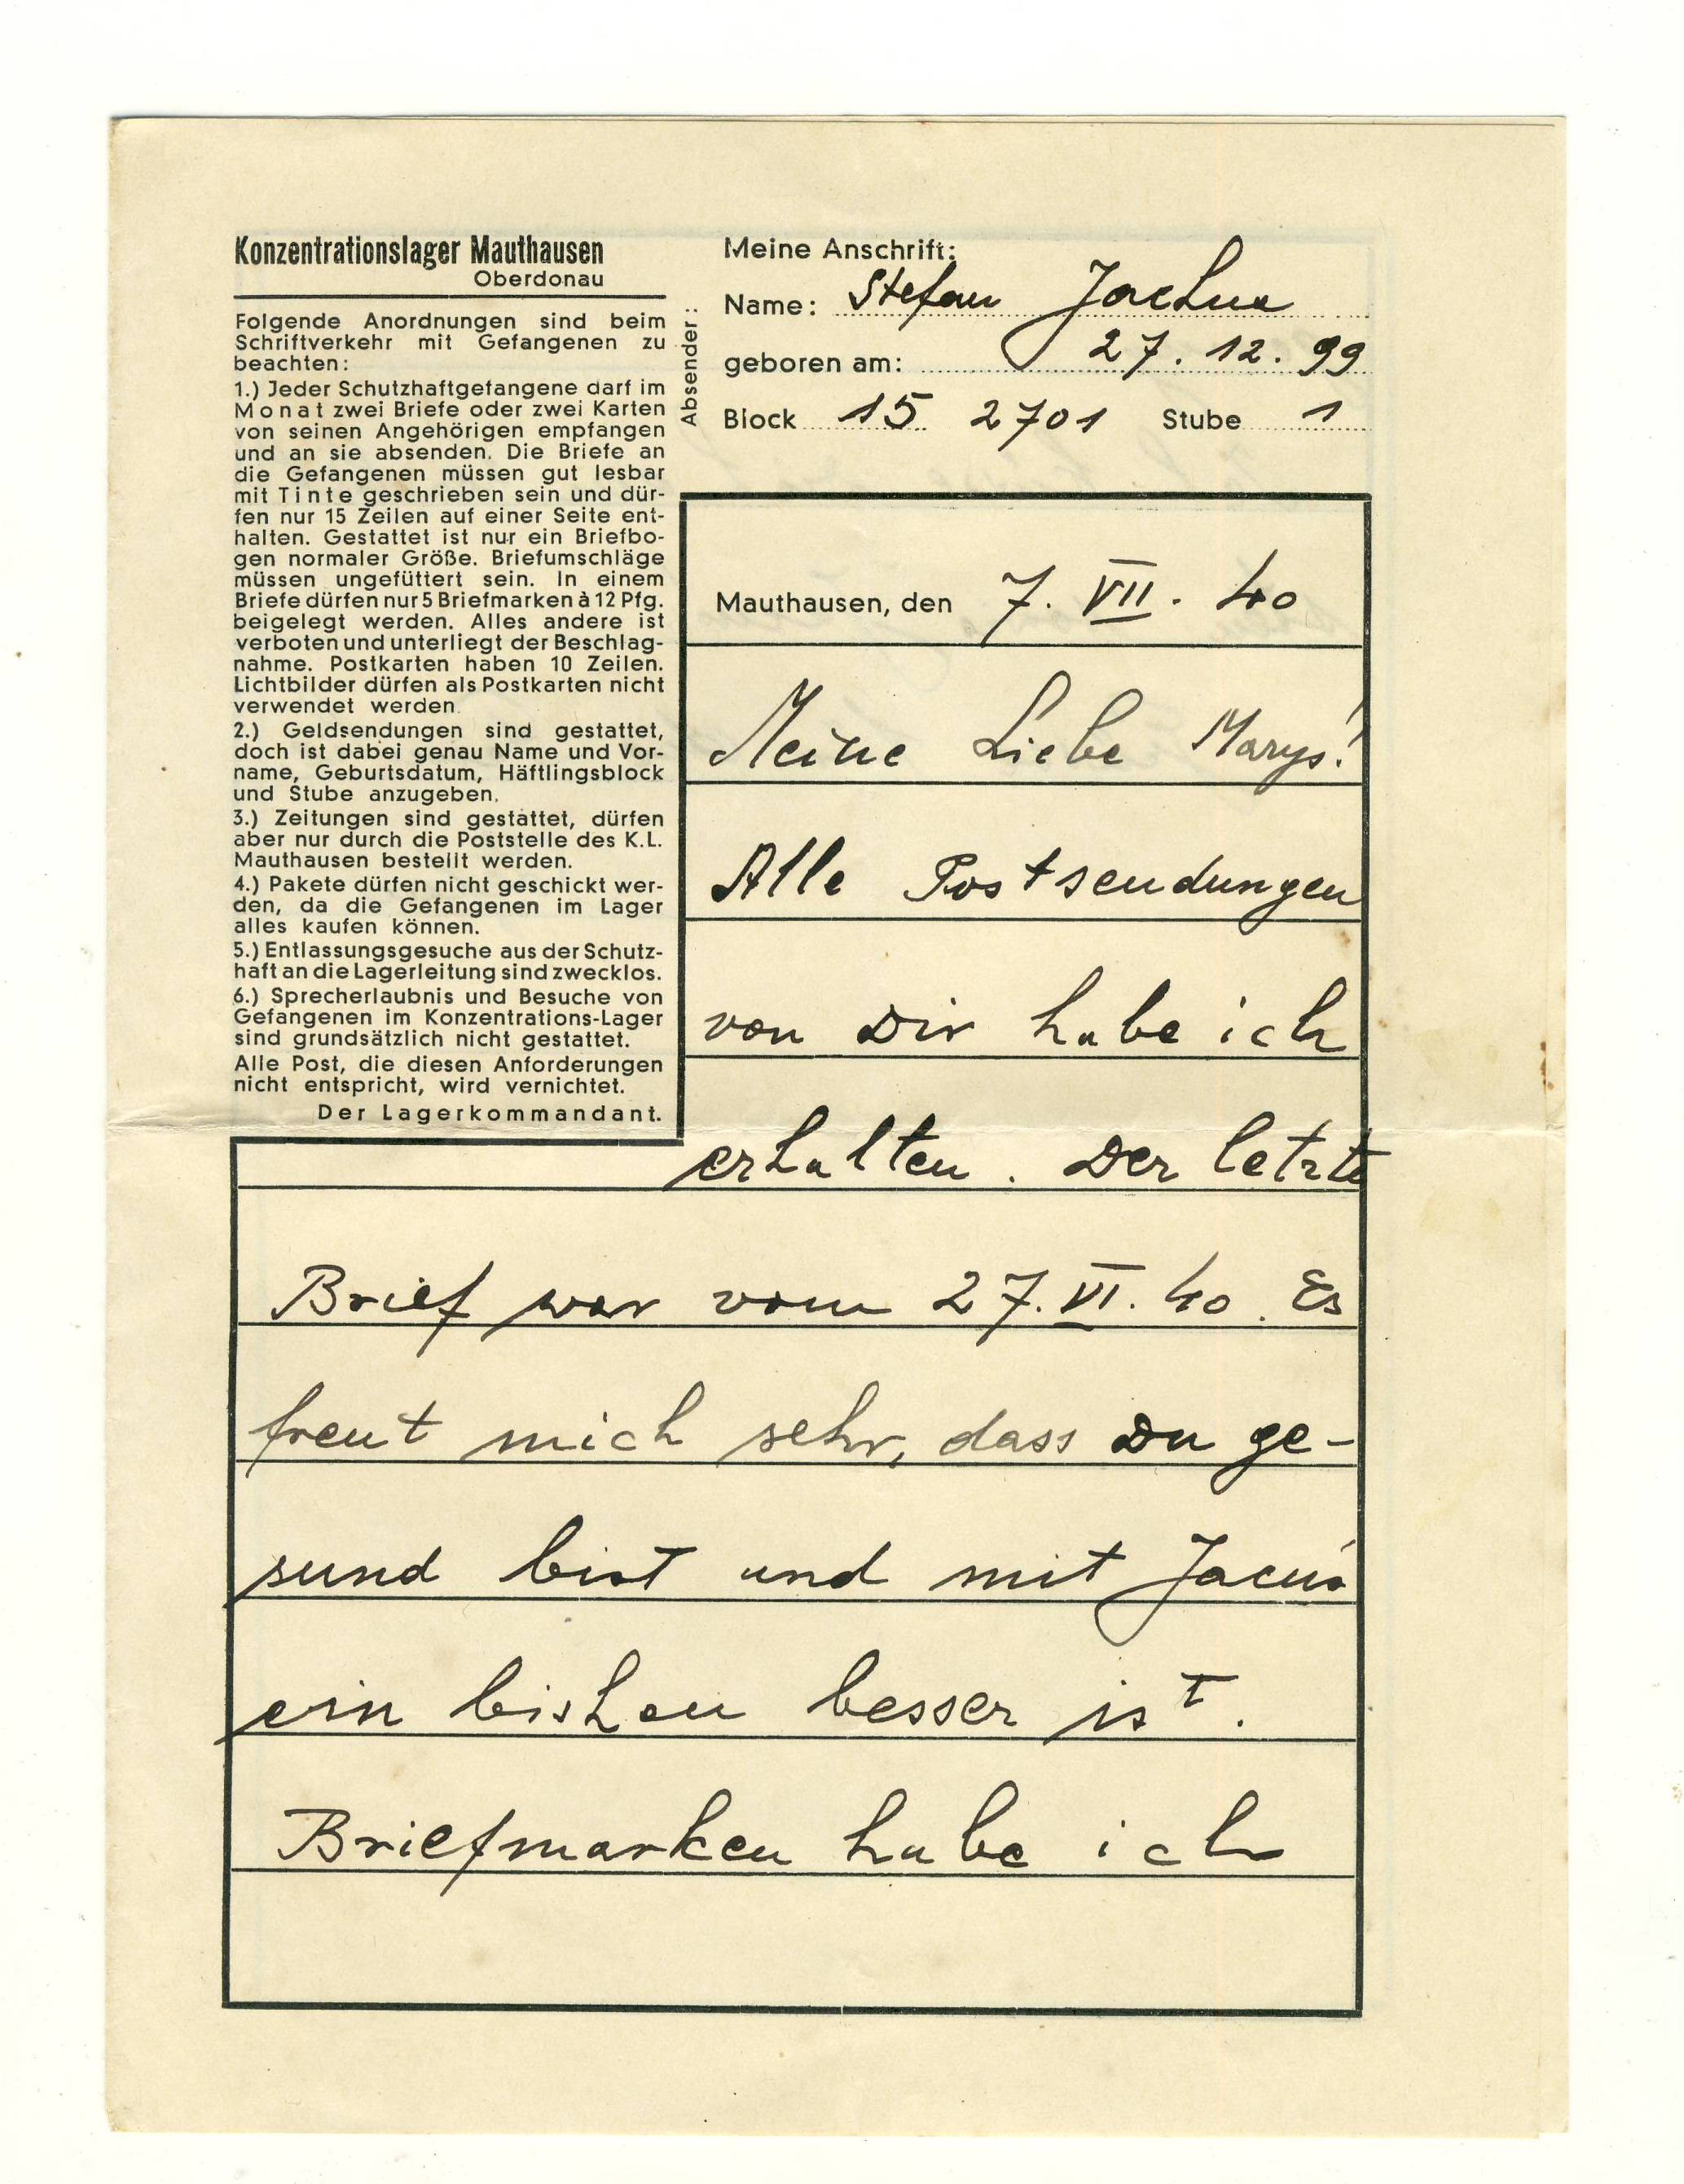 Konzentrationslager Mauthausen
Oberdonau
Folgende Anordnungen sind beim
Schriftverkehr mit Gefangenen zu
beachten:
1.) Jeder Schutzhaftgefangene darf im
Monat zwei Briefe oder zwei Karten
von seinen Angehörigen empfangen
und an sie absenden. Die Briefe an
die Gefangenen müssen gut lesbar
mit Tinte geschrieben sein und dür-
fen nur 15 Zeilen auf einer Seite ent-
halten. Gestattet ist nur ein Briefbo-
gen normaler Größe. Briefumschläge
müssen ungefüttert sein. In einem
Briefe dürfen nur 5 Briefmarken à 12 Pfg.
beigelegt werden. Alles andere ist
verboten und unterliegt der Beschlag-
nahme. Postkarten haben 10 Zeilen.
Lichtbilder dürfen als Postkarten nicht
verwendet werden.
2.) Geldsendungen sind gestattet,
doch ist dabei genau Name und Vor-
name, Geburtsdatum, Häftlingsblock
und Stube anzugeben.
3.) Zeitungen sind gestattet, dürfen
aber nur durch die Poststelle des K.L.
Mauthausen bestellt werden.
4.) Pakete dürfen nicht geschickt wer-
den, da die Gefangenen im Lager
alles kaufen können.
5.) Entlassungsgesuche aus der Schutz-
haft an die Lagerleitung sind zwecklos.
6.) Sprecherlaubnis und Besuche von
Gefangenen im Konzentrations-Lager
sind grundsätzlich nicht gestattet.
Alle Post, die diesen Anforderungen
nicht entspricht, wird vernichtet.
Der Lagerkommandant.
Absender:
Meine Anschrift:
Name: Stefan
geboren am: 27. 12. 99
Block 15 2701 Stube 1
Mauthausen, den 7. VII. 40
Meine Liebe Marys!
Alle Postsendungen
von Dir habe ich
erhalten. Der letzte
Brief war vom 27. VI. 40. Es
freut mich sehr, dass Du ge-
sund bist und mit
ein bishen besser ist.
Briefmarken habe ich